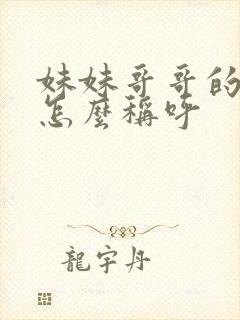 妹妹哥哥的
怎麼稱呼
龍宇丹